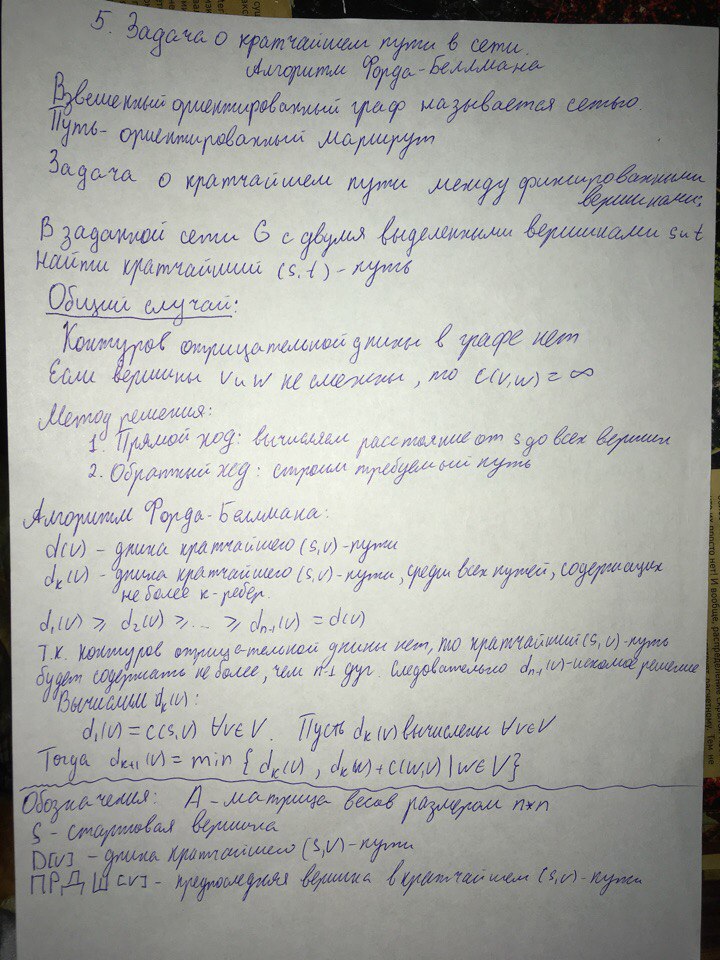 5. Задача о кратчайшем пути в сети.
Алгоритм Форда-Беллмана
Взвешенный ориентированный граф называется сетью.
Путь - ориентированный маршрут
Задача о кратчайшем пути между фиксированными
вершинами:
В заданной сети G с двумя выделенными вершинами s и t
найти кратчайший (s,t) - путь
Общий случай:
Контуров отрицательной длины в графе нет
Если вершины v и w не смежны, то c(v,w) = ∞
Метод решения:
1. Прямой ход: вычисляем расстояние от s до всех вершин
2. Обратный ход: строим требуемый путь
Алгоритм Форда-Беллмана:
d(v) - длина кратчайшего (s,v)-пути
dₖ(v) - длина кратчайшего (s,v)-пути, среди всех путей, содержащих
не более k-ребер.
d₁(v) ≥ d₂(v) ≥ ... ≥ dₙ₋₁(v) = d(v)
Т.к. контуров отрицательной длины нет, то кратчайший (s,v)-путь
будет содержать не более, чем n-1 дуг. Следовательно dₙ₋₁(v)-искомое решение
Вычислим dₖ(v):
d₁(v) = c(s,v) ∀v∈V. Пусть dₖ(v) вычислены ∀v∈V
Тогда dₖ₊₁(v) = min { dₖ(v), dₖ(w)+c(w,v) | w∈V}
Обозначения: A - матрица весов размером n*n
S - стартовая вершина
D[v] - длина кратчайшего (s,v)-пути
ПРДШ[v] - предпоследняя вершина в кратчайшем (s,v)-пути